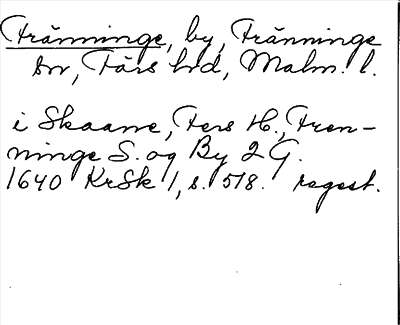 Fränninge, by, Fränninge
sn, Färs hrd, Malm. l.
i Skaane, Fers H., Fren-
ninge S. og By 2 G.
1640 KrSk 1, s. 518. regest.